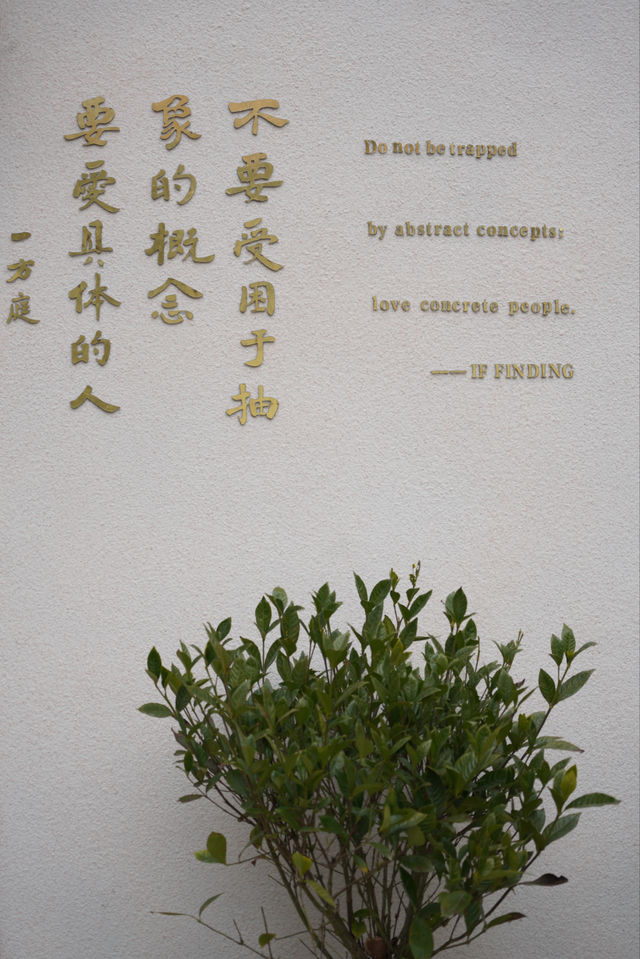 不要受困于抽
象的概念
要爱具体的人
一方庭
Do not be trapped
by abstract concepts;
love concrete people.
——IF FINDING